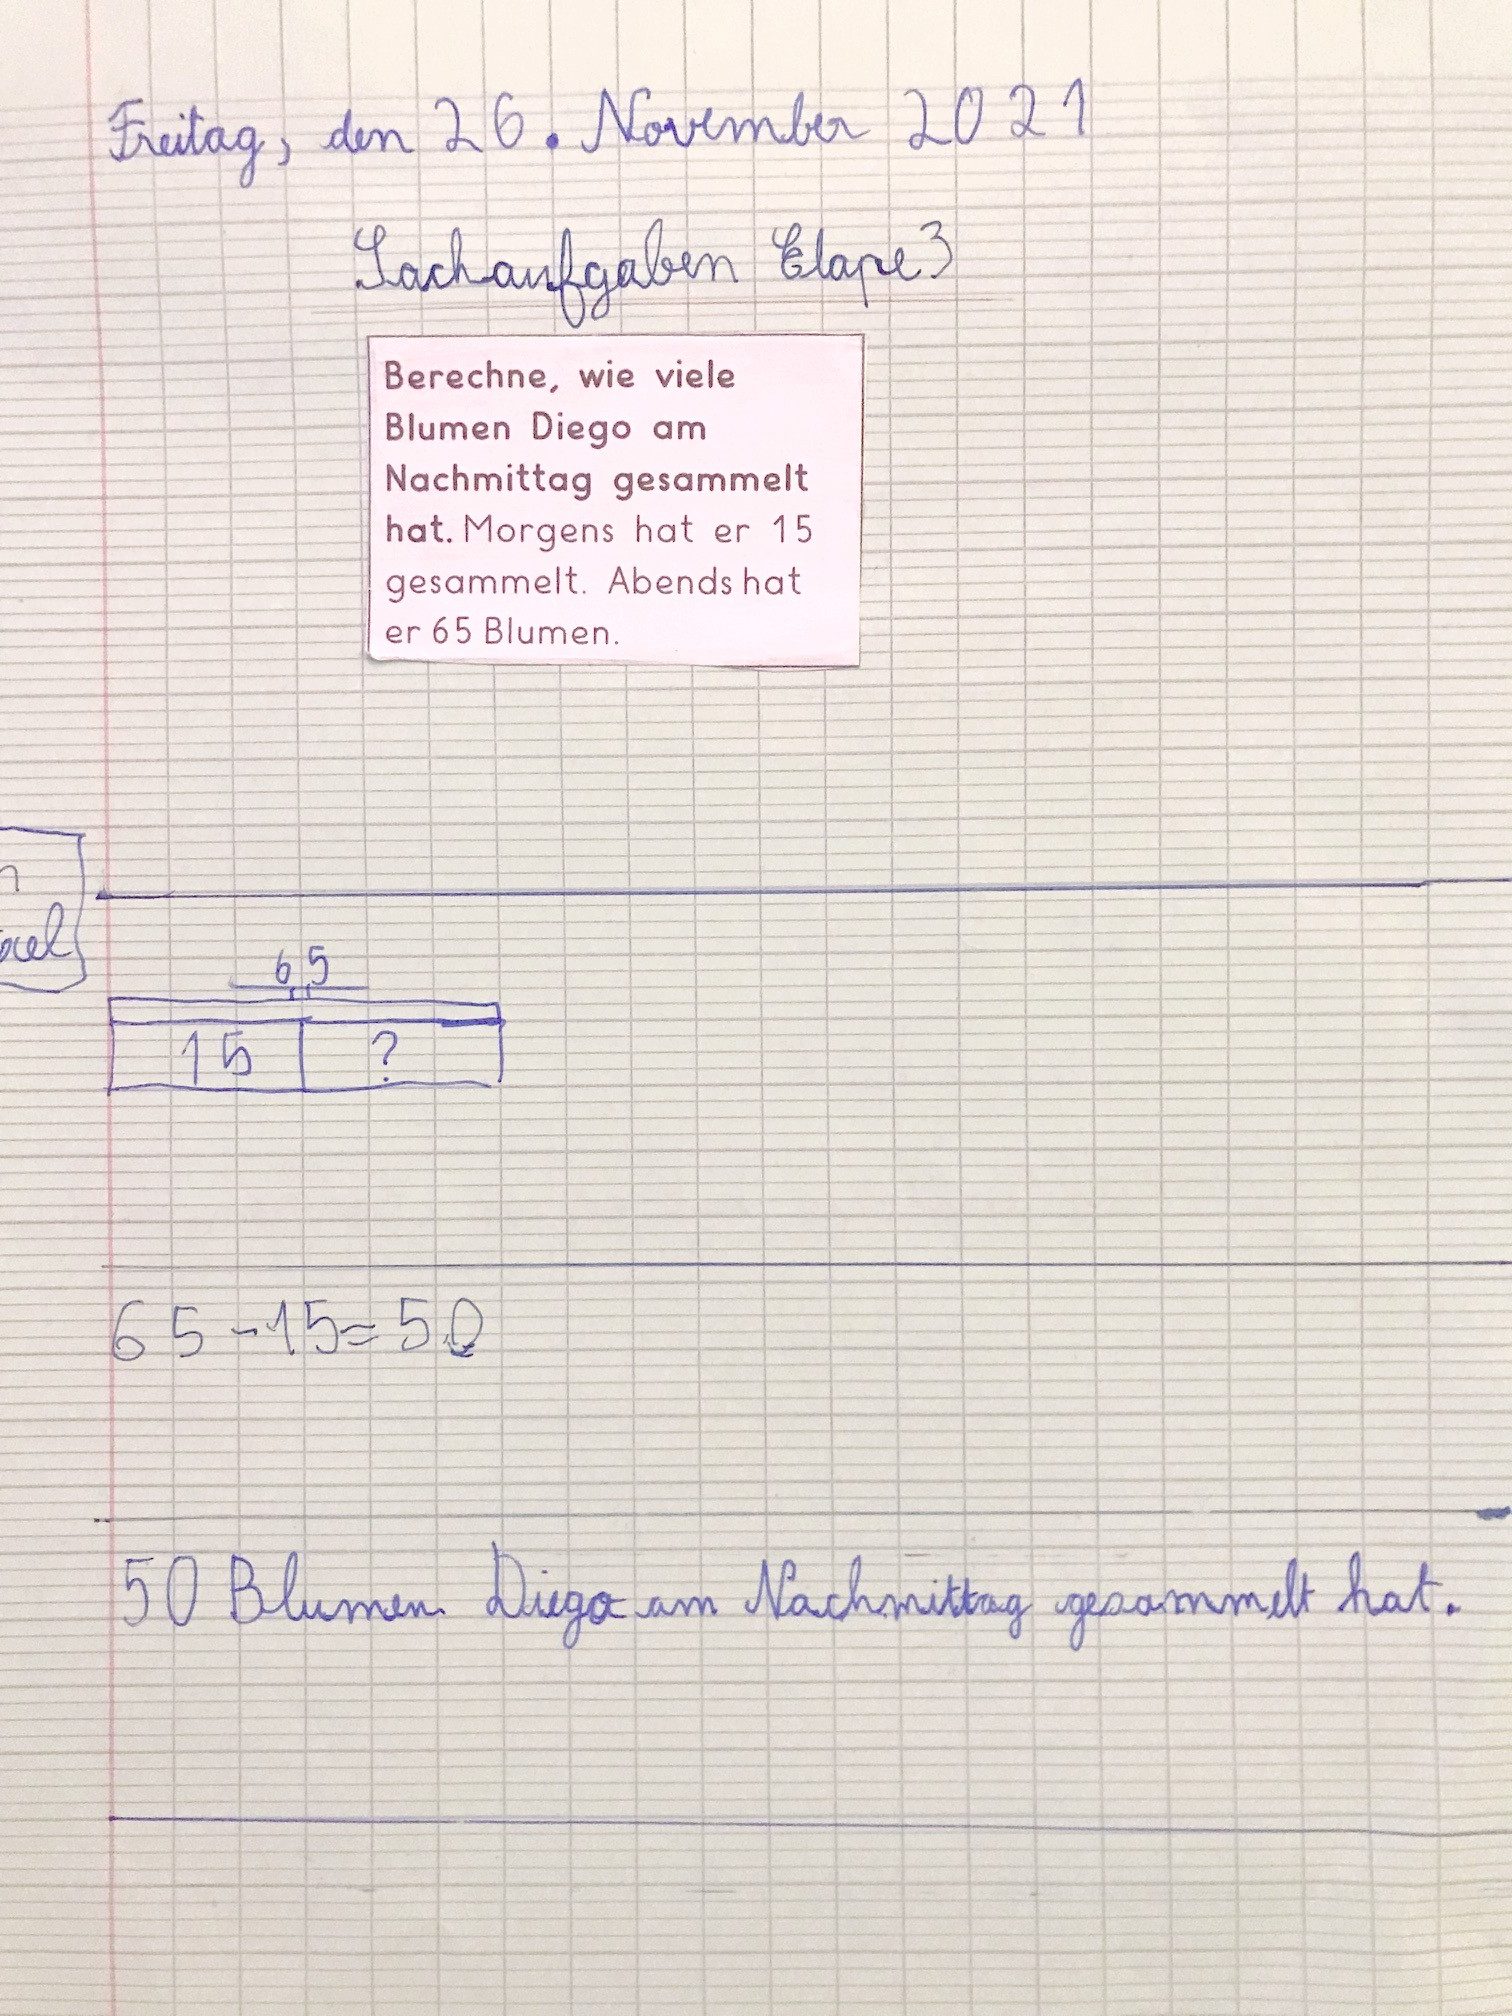 Freitag, den 26. November 2021
Sachaufgaben Etape 3
Berechne, wie viele
Blumen Diego am
Nachmittag gesammelt
hat. Morgens hat er 15
gesammelt. Abends hat
er 65 Blumen.
65
15 ?
65 - 15 = 50
50 Blumen Diego am Nachmittag gesammelt hat.